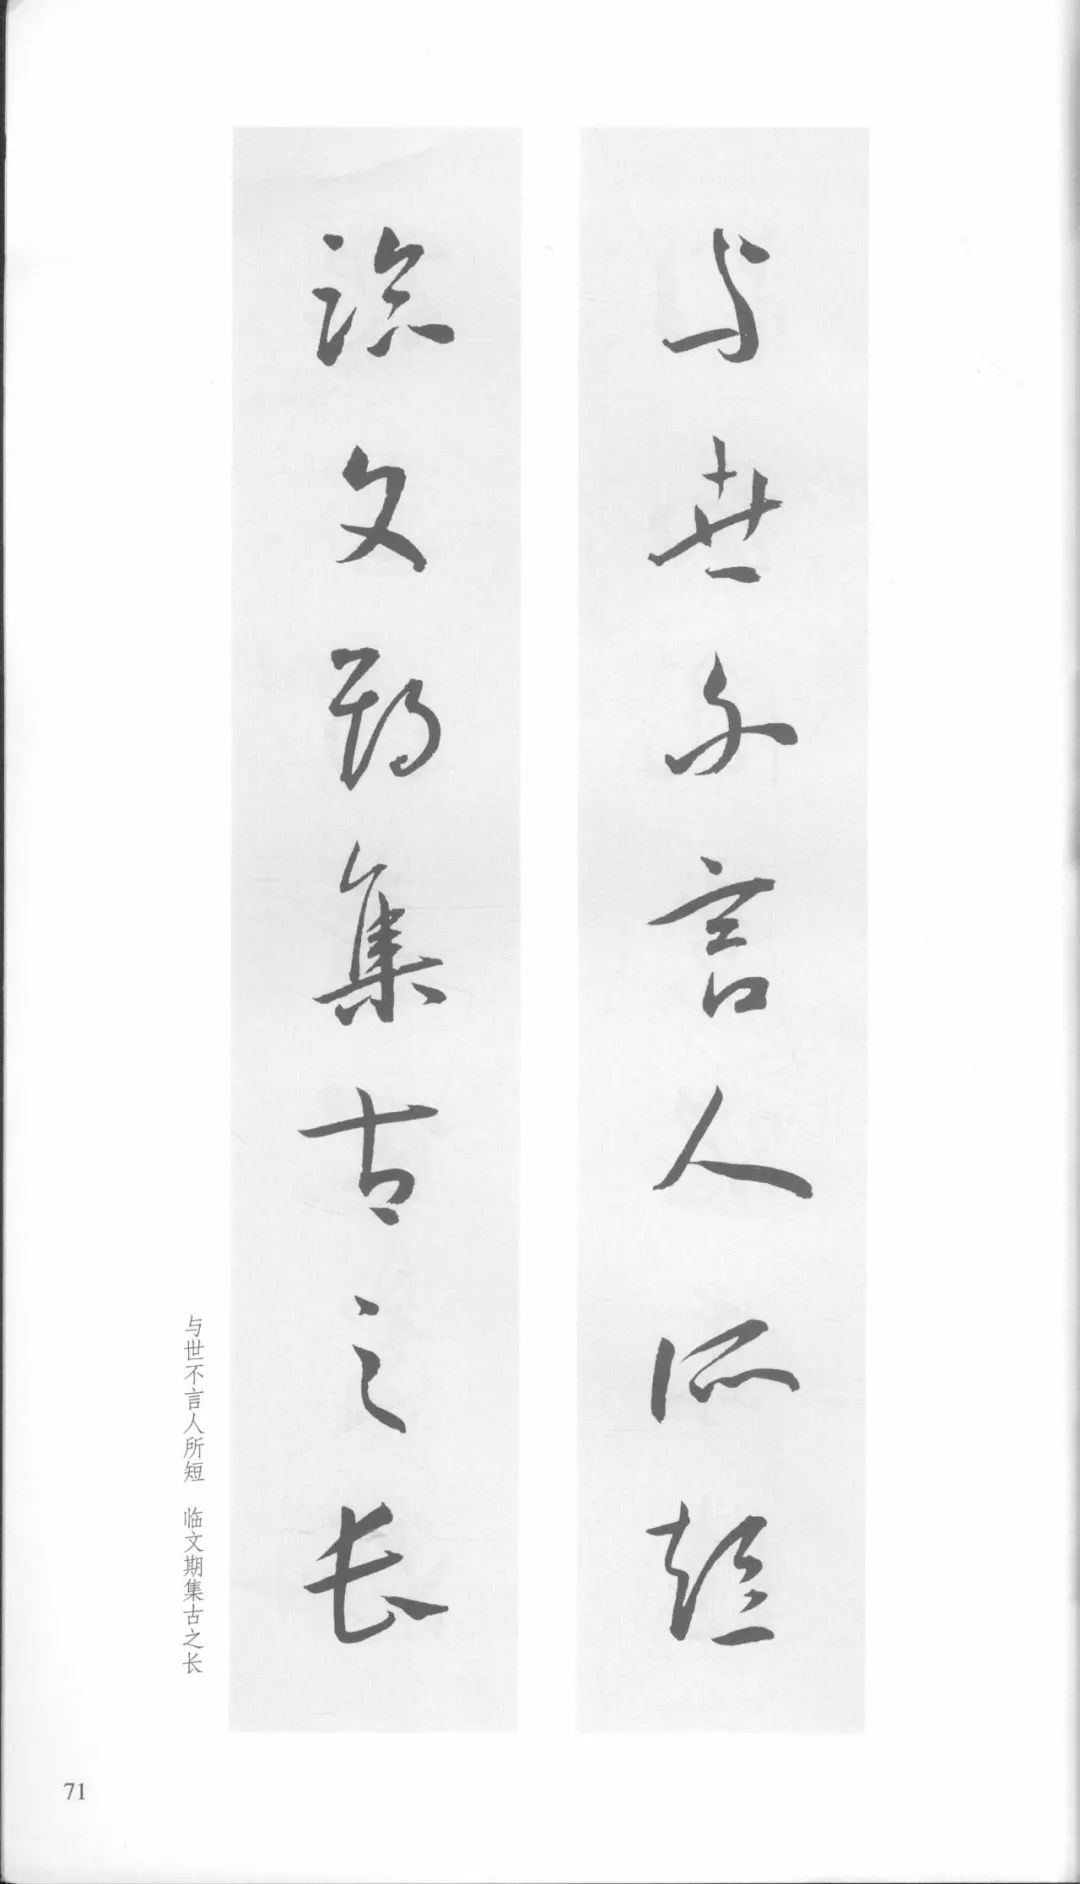 与世不言人所短
临文期集古之长
与世不言人所短 临文期集古之长
71